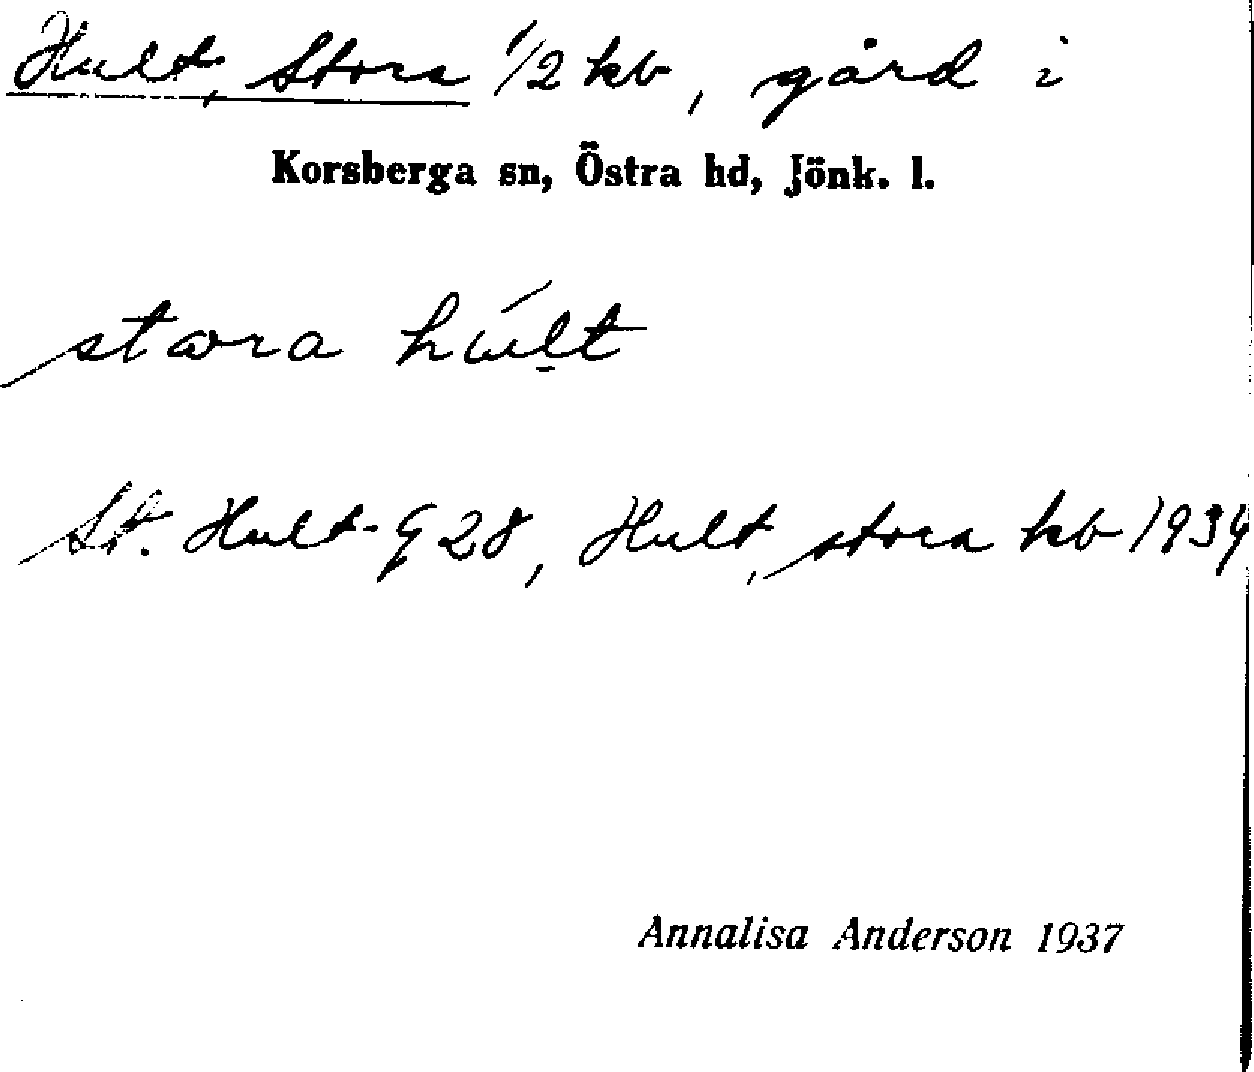 Hult, Stora 1/2 kb, gård i
Korsberga sn, Östra hd, Jönk. l.
stωra húlt
St. Hult G 28, Hult, stora kb 1934
Annalisa Anderson 1937